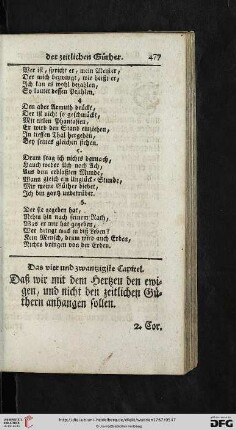 der zeitlichen Güther. 477
Wer ist, spricht er, mein Meister,
Der mich bezwingt, wie heißt er,
Ich kan es wohl bezahlen,
So lautet dessen Prahlen.
4.
Den aber Armuth drückt,
Der ist nicht so geschmückt,
Mit vielen Phantasien,
Er wird den Stand einziehen,
In diesen Thal hergehen,
Bey seines gleichen stehen.
5.
Drum frag ich nichts darnach,
Hauch weder Ach,
Aus dem Munde,
Wann gleich ein Unglück-Stunde,
Mir meine Güther biebet,
Ich bin unbetrübet.
6.
Der sie gegeben hat,
Nehm hin nach seinem Rath,
Was er mir hat gegeben,
Wer bringt was in diß Leben?
Kein Mensch, drum wird auch Erden,
Nichts bringen von der Erden.
Das vier und zwantzigste Capitel.
Daß wir mit dem Hertzen den ewi-
gen, und nicht den zeitlichen Gü-
thern anhangen sollen.
2. Cor.
DFG